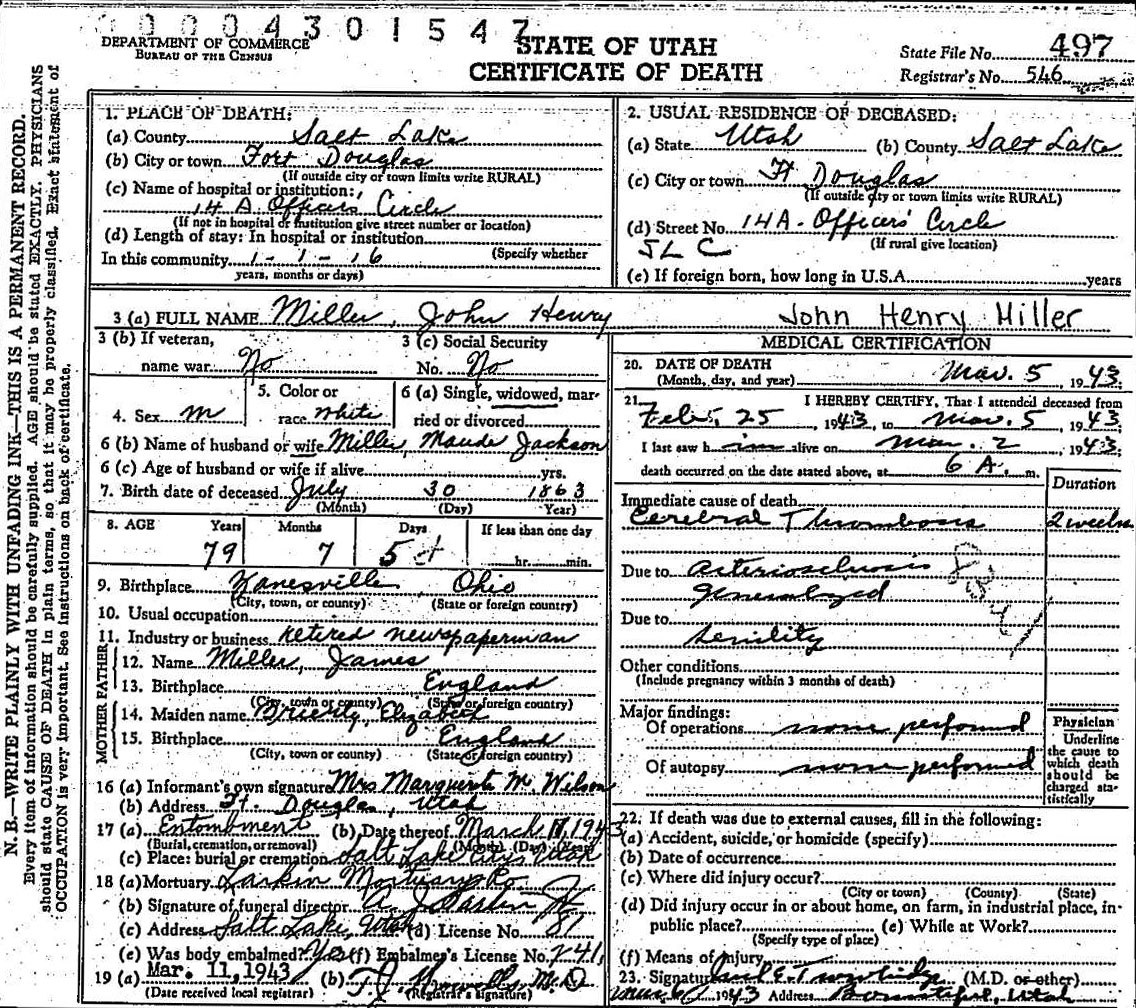 0 0 0 4 3 0 1 5 4 7
DEPARTMENT OF COMMERCE
BUREAU OF THE CENSUS
STATE OF UTAH
CERTIFICATE OF DEATH
State File No. 497
Registrar's No. 546
N. B.—WRITE PLAINLY WITH UNFADING INK—THIS IS A PERMANENT RECORD.
Every item of information should be carefully supplied. AGE should be stated EXACTLY. PHYSICIANS
should state CAUSE OF DEATH in plain terms, so that it may be properly classified. Exact statement of
OCCUPATION is very important. See instructions on back of certificate.
1. PLACE OF DEATH:
(a) County Salt Lake
(b) City or town Fort Douglas
(If outside city or town limits write RURAL)
(c) Name of hospital or institution:
14 A. Officers' Circle
(If not in hospital or institution give street number or location)
(d) Length of stay: In hospital or institution
(Specify whether
In this community 1-1-16
years, months or days)
2. USUAL RESIDENCE OF DECEASED:
(a) State Utah (b) County Salt Lake
(c) City or town Ft Douglas
(If outside city or town limits write RURAL)
(d) Street No. 14A. Officers' Circle
(If rural give location)
SLC
(e) If foreign born, how long in U.S.A. years
3 (a) FULL NAME Miller, John Henry John Henry Miller
3 (b) If veteran,
name war No
3 (c) Social Security
No. No
4. Sex M
5. Color or
race White
6 (a) Single, widowed, mar-
ried or divorced
6 (b) Name of husband or wife Miller, Maude Jackson
6 (c) Age of husband or wife if alive yrs.
7. Birth date of deceased July 30 1863
(Month) (Day) Year)
8. AGE Years Months Days If less than one day
79 7 5 hr. min.
9. Birthplace Zanesville, Ohio
(City, town, or county) (State or foreign country)
10. Usual occupation
11. Industry or business retired newspaperman
FATHER
12. Name Miller, James
13. Birthplace England
(City, town or county) (State or foreign country)
MOTHER
14. Maiden name Brierly, Elizabeth
15. Birthplace England
(City, town or county) (State or foreign country)
16 (a) Informant's own signature Mrs Marguerite M. Wilson
(b) Address Ft. Douglas, Utah
17 (a) Entombment (b) Date thereof March 11, 1943
(Burial, cremation, or removal) (Month) (Day) (Year)
(c) Place: burial or cremation Salt Lake City, Utah
18 (a) Mortuary Larkin Mortuary Co
(b) Signature of funeral director A. J. Larkin Jr
(c) Address Salt Lake, Utah (d) License No. 81
(e) Was body embalmed? Yes (f) Embalmer's License No. 241
19 (a) Mar. 11, 1943 (b) M.D.
(Date received local registrar) (Registrar's signature)
MEDICAL CERTIFICATION
20. DATE OF DEATH
(Month, day, and year) Mar. 5 1943
21. I HEREBY CERTIFY, That I attended deceased from
Feb. 25, 1943, to Mar. 5, 1943
I last saw him alive on Mar. 2, 1943;
death occurred on the date stated above, at 6 A. m.
Duration
Immediate cause of death
Cerebral Thrombosis 2 weeks
Due to Arteriosclerosis
Generalized
Due to
Senility
Other conditions
(Include pregnancy within 3 months of death)
Major findings:
Of operations none performed
Of autopsy none performed
Physician
Underline
the cause to
which death
should be
charged sta-
tistically
22. If death was due to external causes, fill in the following:
(a) Accident, suicide, or homicide (specify)
(b) Date of occurrence
(c) Where did injury occur?
(City or town) (County) (State)
(d) Did injury occur in or about home, on farm, in industrial place, in-
public place? (e) While at Work?
(Specify type of place)
(f) Means of Injury
23. Signature (M.D. or other)
1943 Address Bountiful, Utah